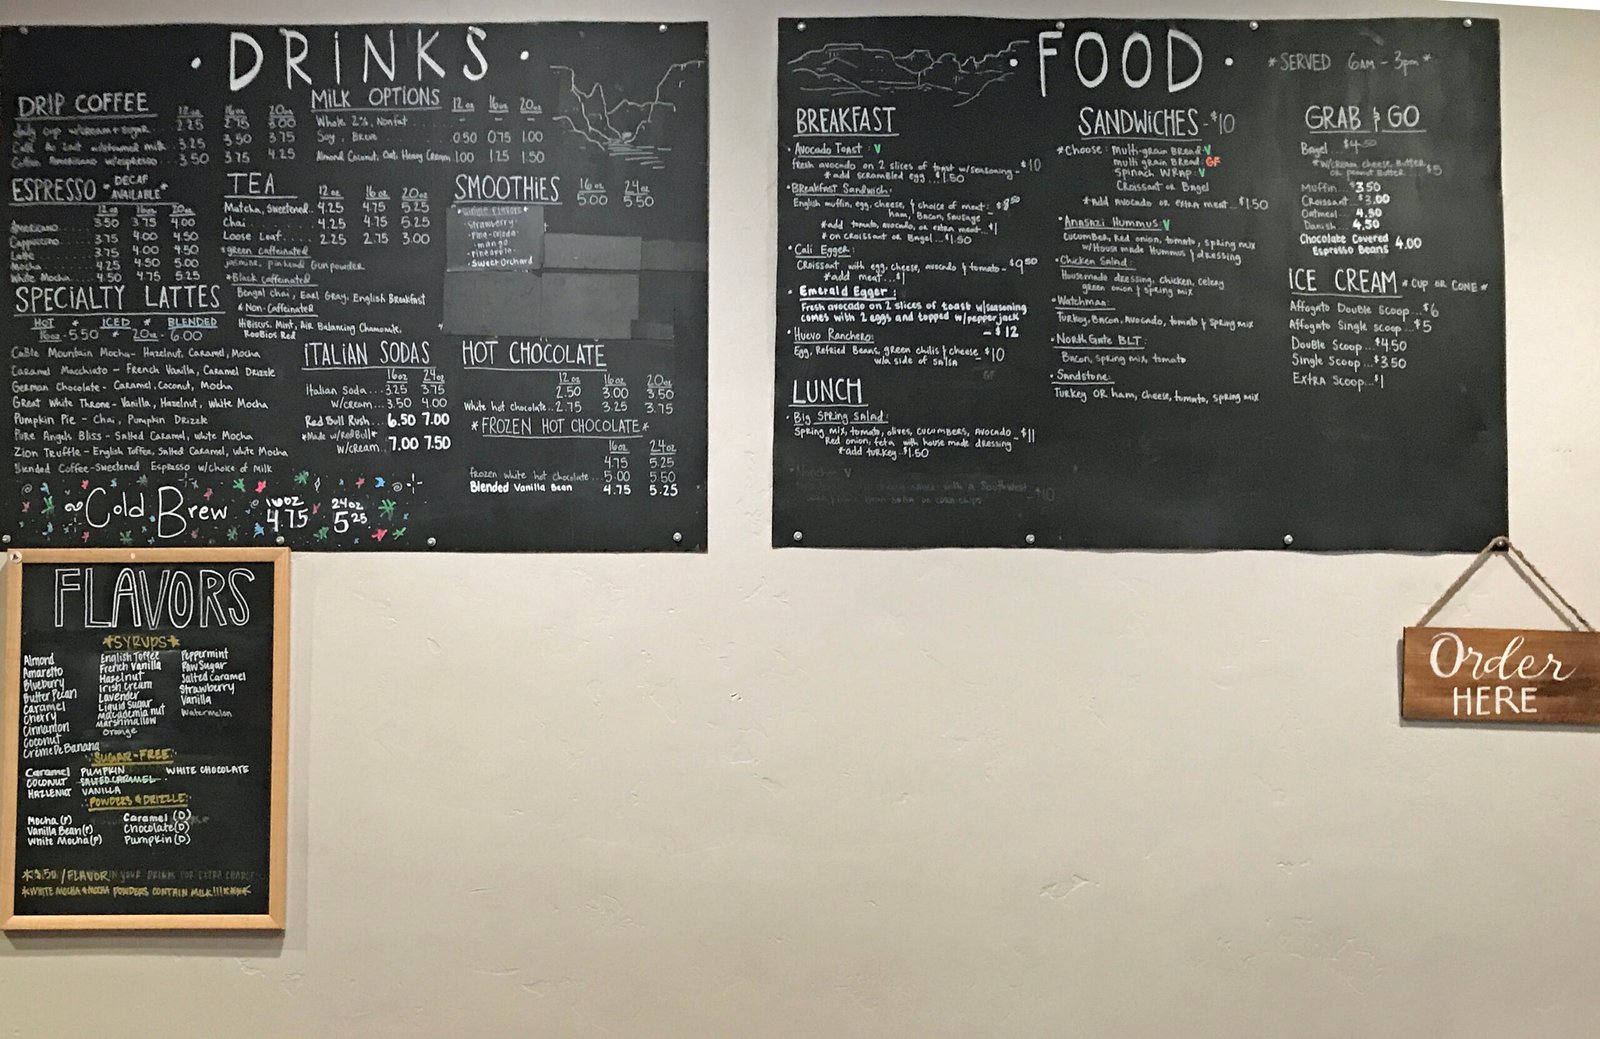 · DRINKS ·
DRIP COFFEE 12oz 16oz 20oz
Daily cup w/cream & sugar 2.25 2.75 3.00
Café Au Lait w/steamed milk 3.25 3.50 3.75
Americano w/espresso 3.50 3.75 4.25
MILK OPTIONS 12oz 16oz 20oz
Whole 2%, Nonfat - - -
Soy, Breve 0.50 0.75 1.00
Almond Coconut, Oat, Heavy Cream 1.00 1.25 1.50
ESPRESSO *DECAF AVAILABLE*
12oz 16oz 20oz
Americano 3.50 3.75 4.00
Cappuccino 3.75 4.00 4.50
Latte 3.75 4.00 4.50
Mocha 4.25 4.50 5.00
White Mocha 4.50 4.75 5.25
TEA 12oz 16oz 20oz
Matcha, Sweetened.. 4.25 4.75 5.25
Chai 4.25 4.75 5.25
Loose Leaf 2.25 2.75 3.00
*green caffeinated
Jasmine, pinhead Gunpowder
*Black caffeinated
Bengal Chai, Earl Gray, English Breakfast
*Non-Caffeinated
Hibiscus, Mint, Air Balancing Chamomile,
Rooibios Red
SMOOTHIES 16oz 24oz
5.00 5.50
Strawberry
Pina-colada
mango
Pineapple
Sweet Orchard
SPECIALTY LATTES
HOT * ICED * BLENDED
16oz - 5.50 * 20oz - 6.00
Cable Mountain Mocha - Hazelnut, Caramel, Mocha
Caramel Macchiato - French Vanilla, Caramel Drizzle
German Chocolate - Caramel, Coconut, Mocha
Great White Throne - Vanilla, Hazelnut, White Mocha
Pumpkin Pie - Chai, Pumpkin Drizzle
Pure Angels Bliss - Salted Caramel, White Mocha
Zion Truffle - English Toffee, Salted Caramel, White Mocha
Blended Coffee - Sweetened Espresso w/choice of Milk
ITALIAN SODAS
16oz 24oz
Italian Soda... 3.25 3.75
w/cream... 3.50 4.00
Red Bull Rush... 6.50 7.00
*Made w/Red Bull*
w/cream.. 7.00 7.50
HOT CHOCOLATE
12oz 16oz 20oz
2.50 3.00 3.50
White hot chocolate.. 2.75 3.25 3.75
*FROZEN HOT CHOCOLATE*
16oz 24oz
4.75 5.25
frozen white hot chocolate... 5.00 5.50
Blended Vanilla Bean 4.75 5.25
Cold Brew 16oz 4.75 24oz 5.25
· FOOD ·
*SERVED 6am - 3pm*
BREAKFAST
· Avocado Toast: V
Fresh avocado on 2 slices of toast w/seasoning - $10
*add scrambled egg...$1.50
· Breakfast Sandwich:
English muffin, egg, cheese, & choice of meat: - $8.50
ham, Bacon, Sausage
*add tomato, avocado, or extra meat...$1
*on Croissant or Bagel...$1.50
· Cali Egger:
Croissant with egg, cheese, avocado & tomato - $9.50
*add meat...$1
· Emerald Egger:
Fresh avocado on 2 slices of toast w/seasoning
comes with 2 eggs and topped w/pepper jack
- $12
· Huevo Ranchero:
Egg, Refried Beans, green chilis & cheese $10
w/a side of salsa
GF
LUNCH
· Big Spring Salad:
Spring mix, tomato, olives, cucumbers, avocado - $11
Red onion, feta with house made dressing
*add turkey...$1.50
SANDWICHES - $10
*Choose: Multi-grain Bread: V
multi grain Bread: GF
Spinach Wrap: V
Croissant or Bagel
*add avocado or extra meat...$1.50
· Anasazi Hummus: V
Cucumber, Red onion, tomato, spring mix
w/House made Hummus & dressing
· Chicken Salad:
Housemade dressing, chicken, celery
green onion & spring mix
· Watchman:
Turkey, Bacon, Avocado, tomato & spring mix
· North Gate BLT:
Bacon, spring mix, tomato
· Sandstone:
Turkey or ham, cheese, tomato, spring mix
GRAB & GO
Bagel...$4.50
*w/cream cheese, Butter, or peanut butter...$5
Muffin...$3.50
Croissant...$3.00
Oatmeal... 4.50
Danish... 4.50
Chocolate Covered
Espresso Beans 4.00
ICE CREAM *CUP OR CONE*
Affogato Double Scoop...$6
Affogato Single Scoop...$5
Double Scoop...$4.50
Single Scoop...$3.50
Extra Scoop...$1
FLAVORS
*SYRUPS*
Almond
Amaretto
Blueburry
Butter Pecan
Caramel
Cherry
Cinnamon
Coconut
Crème De Banana
English Toffee
French Vanilla
Hazelnut
Irish Cream
Lavender
Liquid Sugar
Macademia nut
Marshmallow
Orange
Peppermint
Raw Sugar
Salted Caramel
Strawberry
Vanilla
Watermelon
SUGAR-FREE:
Caramel PUMPKIN WHITE CHOCOLATE
COCONUT SALTED CARAMEL
HAZLENUT VANILLA
POWDERS & DRIZZLE:
Mocha (P) Caramel (D)
Vanilla Bean (P) Chocolate (D)
White Mocha (P) Pumpkin (D)
*$.50/FLAVOR IN YOUR DRINK FOR EXTRA CHARGE
*WHITE MOCHA & MOCHA POWDERS CONTAIN MILK!!!****
Order
HERE